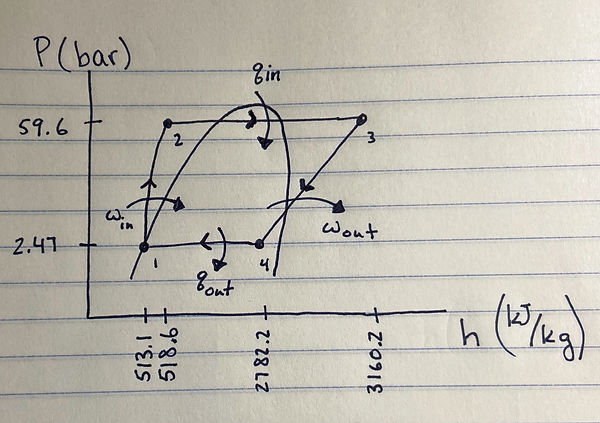 P(bar)
qin
59.6
2
3
win
wout
2.47
1
4
qout
h (kJ/kg)
513.1
518.6
2782.2
3160.2